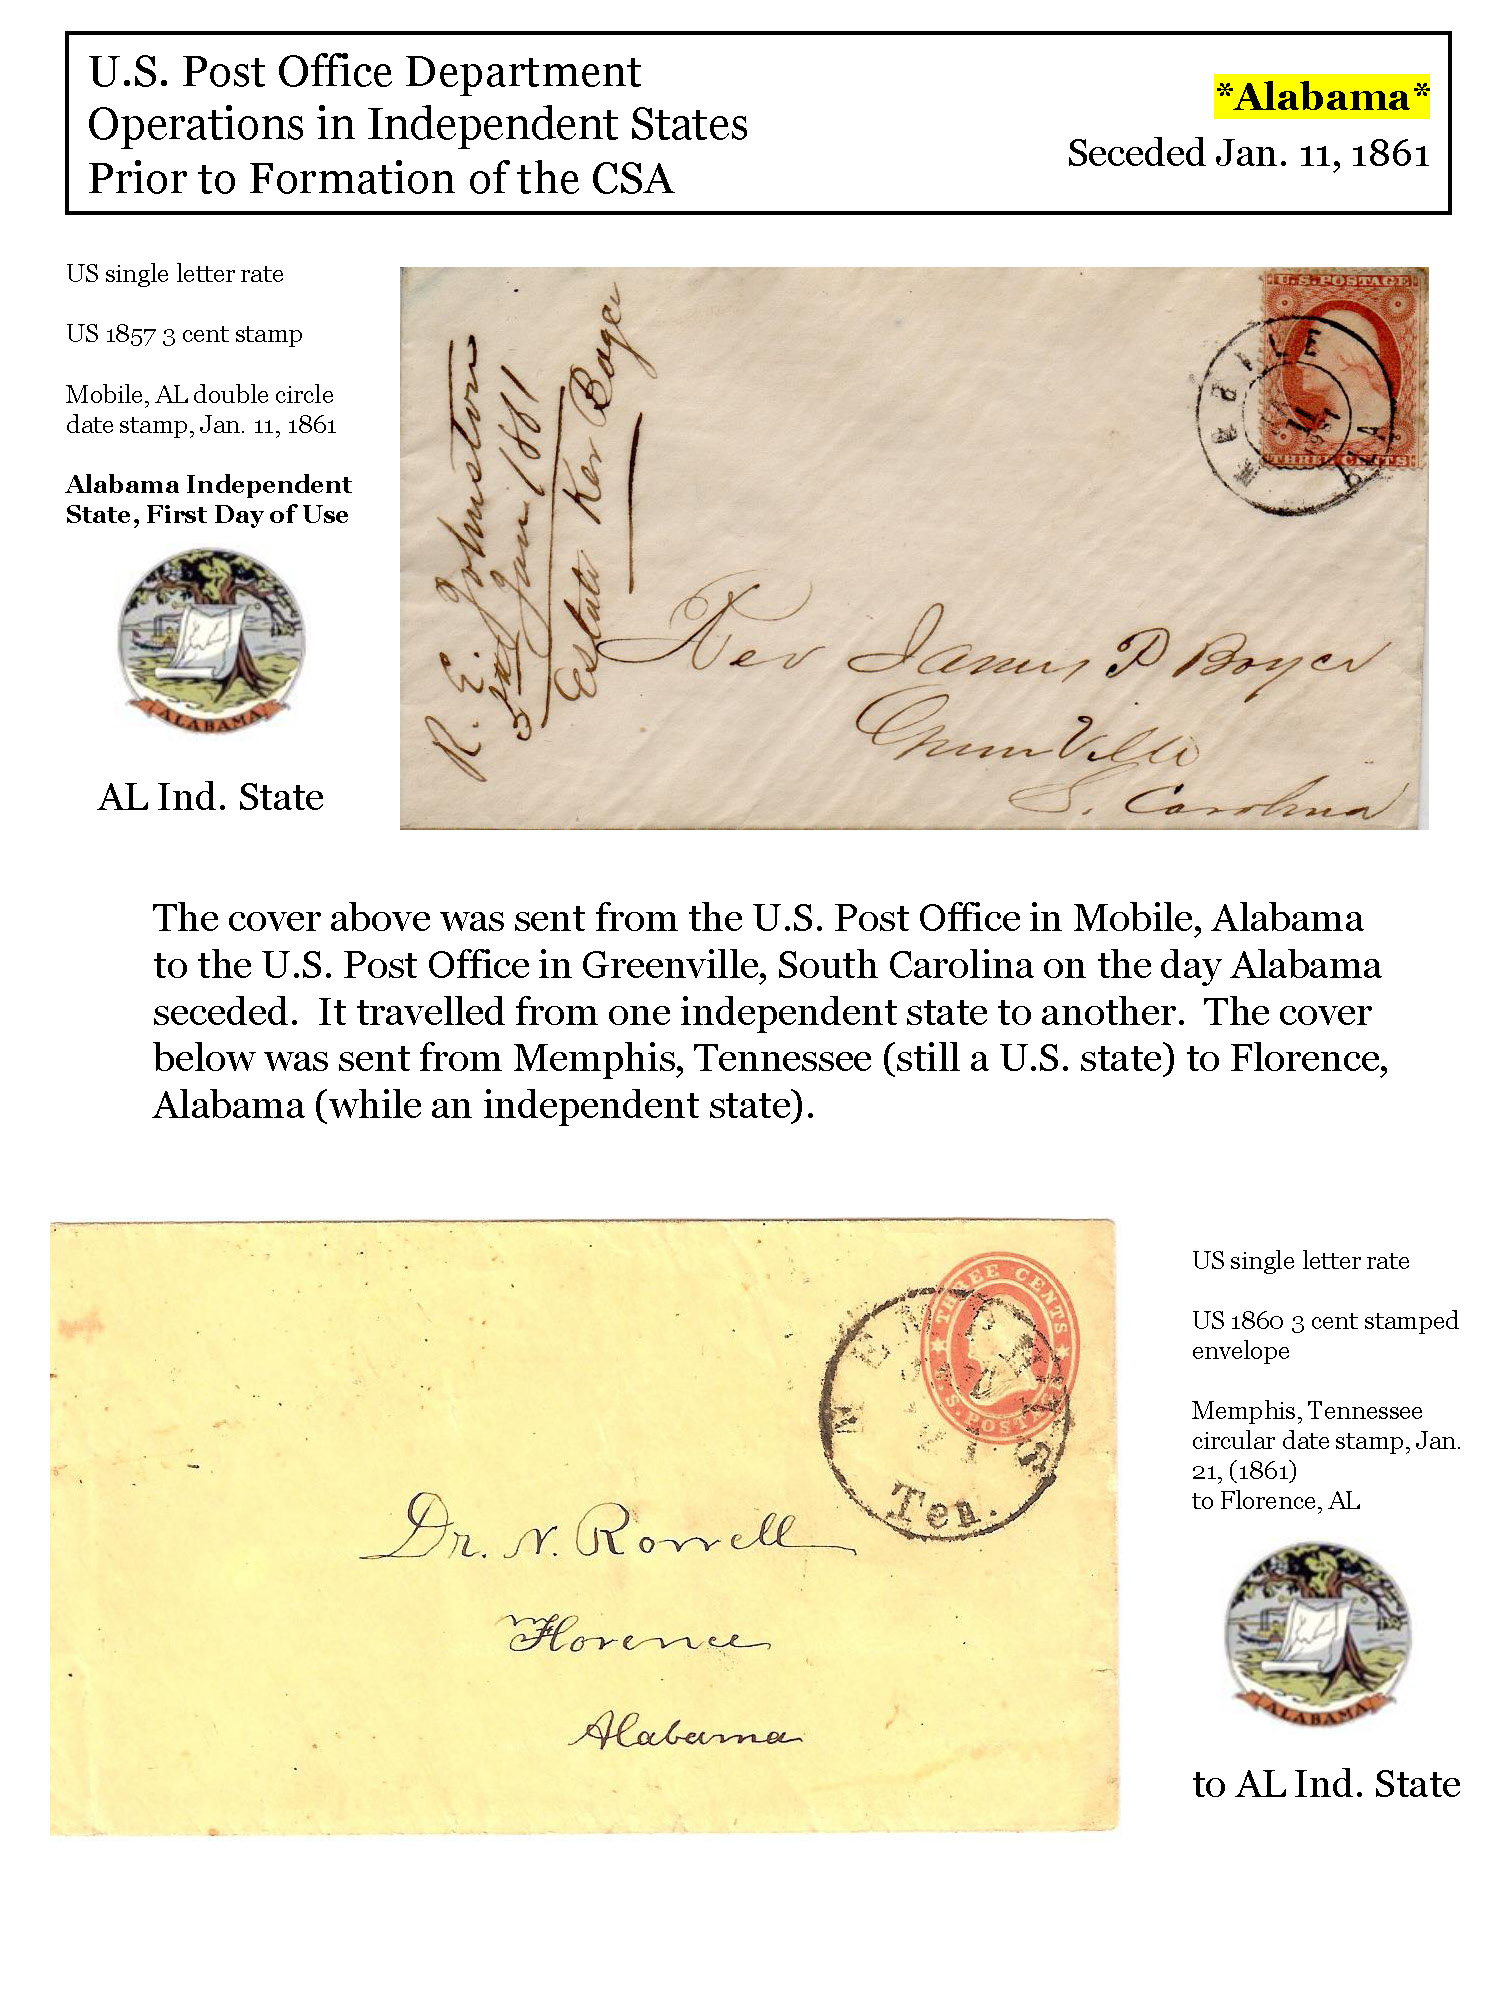 U.S. Post Office Department
Operations in Independent States
Prior to Formation of the CSA
*Alabama*
Seceded Jan. 11, 1861
US single letter rate
US 1857 3 cent stamp
Mobile, AL double circle
date stamp, Jan. 11, 1861
Alabama Independent
State, First Day of Use
ALABAMA
AL Ind. State
R. E. Johnston
Jan 1861
Estate Ker Boyce
U.S. POSTAGE
THREE CENTS
MOBILE ALA
11
1861
Rev James P Boyce
GreenVille
S. Carolina
The cover above was sent from the U.S. Post Office in Mobile, Alabama
to the U.S. Post Office in Greenville, South Carolina on the day Alabama
seceded. It travelled from one independent state to another. The cover
below was sent from Memphis, Tennessee (still a U.S. state) to Florence,
Alabama (while an independent state).
THREE CENTS
U.S. POSTAGE
MEMPHIS
JAN
21
Ten.
Dr. N. Rowell
Florence
Alabama
US single letter rate
US 1860 3 cent stamped
envelope
Memphis, Tennessee
circular date stamp, Jan.
21, (1861)
to Florence, AL
ALABAMA
to AL Ind. State